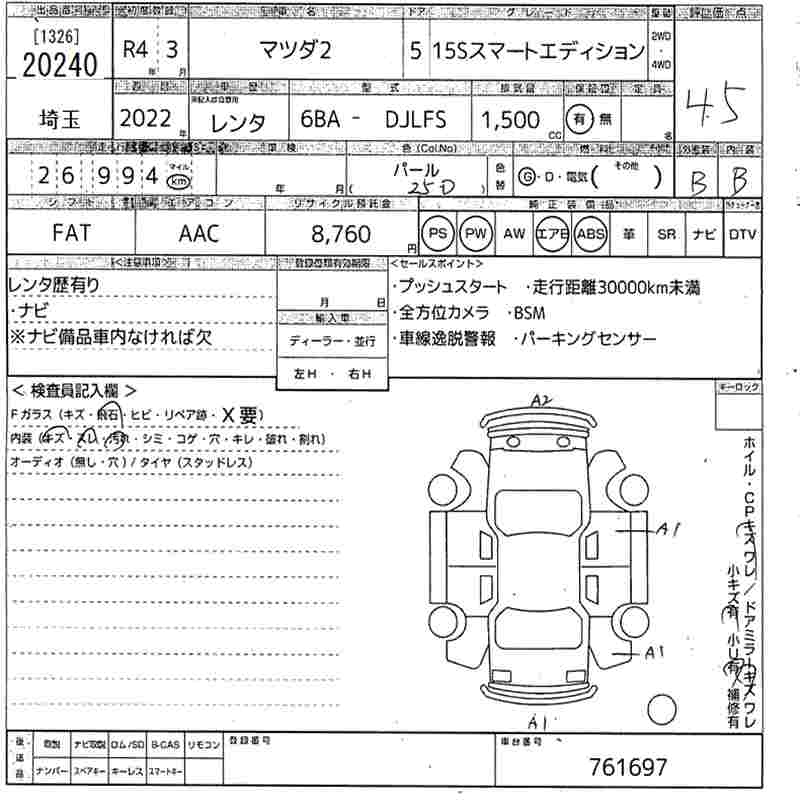 出品番号 初度登録 車名 ドア グレード 型 評価点
[1326]
20240 R4 年 3 月 マツダ2 5 15Sスマートエディション 2WD・4WD 4.5
年式 車歴 型式 排気量 保証書 定員
埼玉 2022 年 レンタ 6BA - DJLFS 1,500 CC 有 無 名
車検 色(Col.No) 燃料 外装 内装
26994 マイル km 年 月( パール 250 ) 色替 G・D・電気( その他 ) B B
シフト エアコン リサイクル預託金 純正装備品
FAT AAC 8,760 円 PS PW AW エアB ABS 革 SR ナビ DTV
<注意事項> 登録書類有効期限 <セールスポイント>
レンタ歴有り 月 日 ・プッシュスタート ・走行距離30000km未満
・ナビ 輸入車 ・全方位カメラ ・BSM
※ナビ備品車内なければ欠 ディーラー・並行 ・車線逸脱警報 ・パーキングセンサー
左H ・ 右H
< 検査員記入欄 > キーロック
Fガラス(キズ・飛石・ヒビ・リペア跡・X要)
内装(キズ・スレ・汚れ・シミ・コゲ・穴・キレ・破れ・割れ)
オーディオ(無し・穴)/タイヤ(スタッドレス)
A2
A1
A1
A1
ホイル・CPキズワレ/ドアミラーキズワレ
小キズ有 小U有 補修有
後送品 取説 ナビ取説 ロム/SD B-CAS リモコン 登録番号 車台番号
ナンバー スペアキー キーレス スマートキー 761697